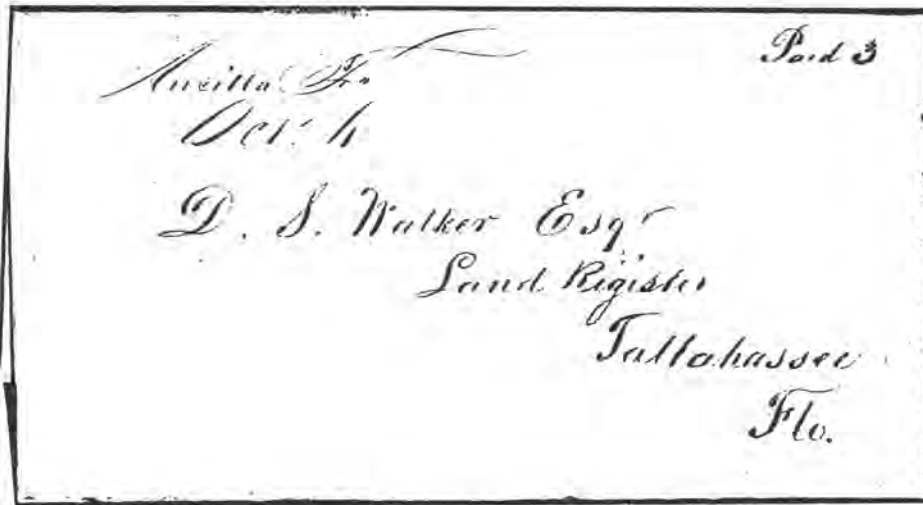 Paid 3
Aucilla Fa
Oct. 4
D. S. Walker Esqr
Land Register
Tallahassee
Flo.